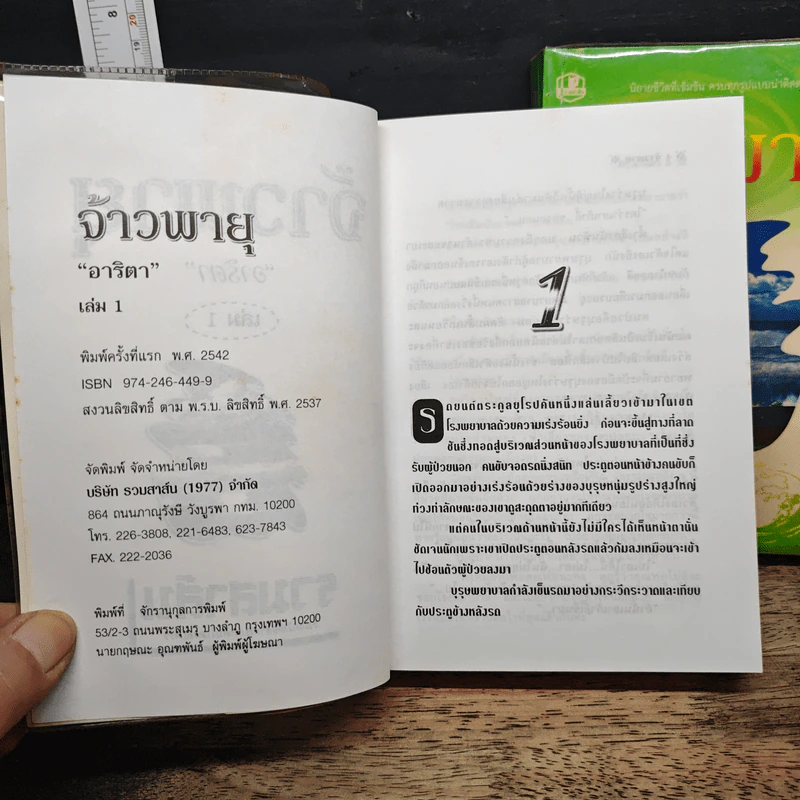 จ้าวพายุ
“อาริตา”
เล่ม 1
พิมพ์ครั้งที่แรก พ.ศ. 2542
ISBN 974-246-449-9
สงวนลิขสิทธิ์ ตาม พ.ร.บ. ลิขสิทธิ์ พ.ศ. 2537
จัดพิมพ์ จัดจำหน่ายโดย
บริษัท รวมสาส์น (1977) จำกัด
864 ถนนภาณุรังษี วังบูรพา กทม. 10200
โทร. 226-3808, 221-6483, 623-7843
FAX. 222-2036
พิมพ์ที่ จักรานุกูลการพิมพ์
53/2-3 ถนนพระสุเมรุ บางลำภู กรุงเทพฯ 10200
นายกฤษณะ อุณฑพันธ์ ผู้พิมพ์ผู้โฆษณา
1
รถยนต์ตระกูลยุโรปคันหนึ่งแล่นเลี้ยวเข้ามาในเขต
โรงพยาบาลด้วยความเร่งร้อนยิ่ง ก่อนจะขึ้นสู่ทางที่ลาด
ชันซึ่งทอดสู่บริเวณส่วนหน้าของโรงพยาบาลที่เป็นที่ซึ่ง
รับผู้ป่วยนอก คนขับจอดรถนิ่งสนิท ประตูตอนหน้าข้างคนขับก็
เปิดออกมาอย่างเร่งร้อนด้วยร่างของบุรุษหนุ่มรูปร่างสูงใหญ่
ท่วงท่าลักษณะของเขาดูสะดุดตาอยู่มากทีเดียว
แต่คนในบริเวณด้านหน้านี้ยังไม่มีใครได้เห็นหน้าตานั่น
ชัดเจนนักเพราะเขาเปิดประตูตอนหลังรถแล้วก้มลงเหมือนจะเข้า
ไปช้อนตัวผู้ป่วยลงมา
บุรุษพยาบาลกำลังเข็นรถมาอย่างกระวีกระวาดและเทียบ
กับประตูข้างหลังรถ
นิยายชีวิตที่เข้มข้น ครบทุกรูปแบบน่าติดต
8
20
19